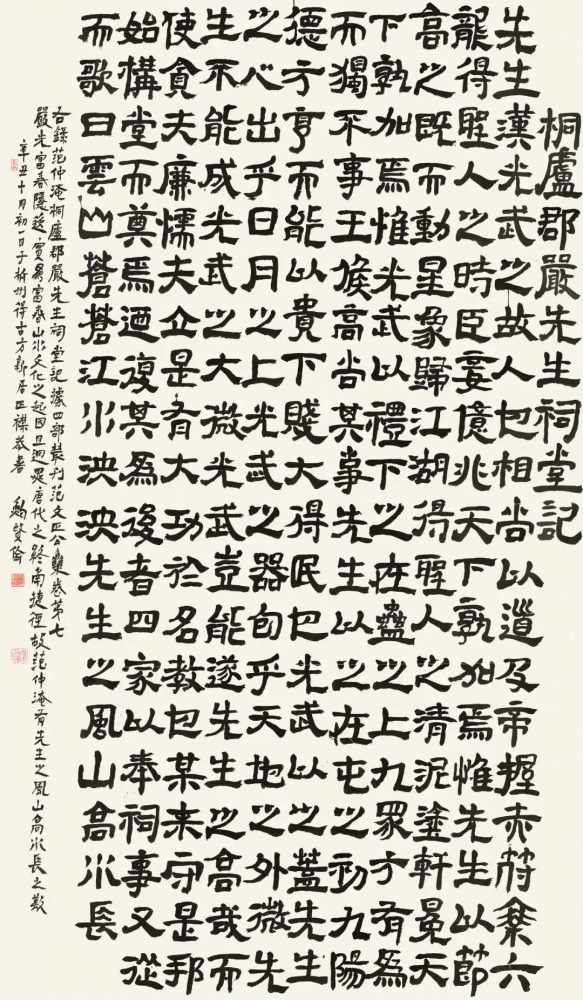 桐廬郡嚴先生祠堂記
先生漢光武之故人也相尚以道及帝握赤符乘六
龍得聖人之時臣妾億兆天下孰加焉惟先生以節
高之既而動星象歸江湖得聖人之清泥塗軒冕天
下孰加焉惟光武以禮下之在蠱之上九眾方有為
而獨不事王侯高尚其事先生以之在屯之初九陽
德方亨而能以貴下賤大得民也光武以之蓋先生
之心出乎日月之上光武之器包乎天地之外微先
生不能成光武之大微光武豈能遂先生之高哉而
使貪夫廉懦夫立是有大功於名教也某來守是邦
始構堂而奠焉迺復其為後者四家以奉祠事又從
而歌曰雲山蒼蒼江水泱泱先生之風山高水長
右錄范仲淹桐廬郡嚴先生祠堂記據四部叢刊范文正公集卷第七
嚴光富春隱逸實為富春山水文化之起因且迥異唐代之終南捷徑故范仲淹有先生之風山高水長之歎
辛丑十月初一日于杭州得古方新居正襟恭書 鮑賢倫